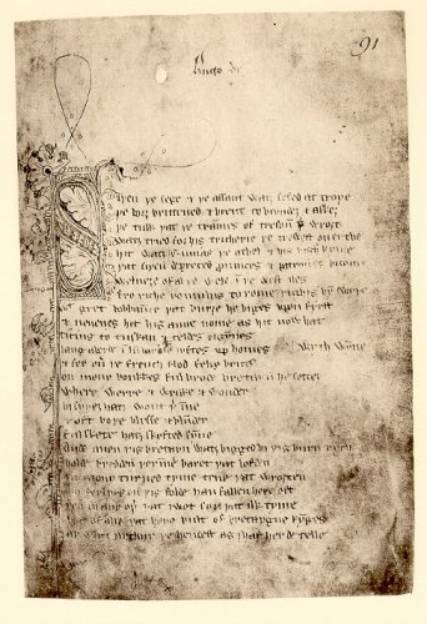 91
Hugo de
Siþen þe sege & þe assaut watz sesed at troye
þe borȝ brittened & brent to brondez & askez
þe tulk þat þe trammes of tresoun þer wroȝt
watz tried for his tricherie þe trewest on erthe
hit watz ennias þe athel & his highe kynde
þat siþen depreced prouinces & patrounes bicome
welneȝe of al þe wele in þe west iles
fro riche romulus to rome ricchis hym swyþe
gret bobbaunce þat burȝe he biges vpon fyrst
& neuenes hit his aune nome as hit now hat
ticius to tuskan & teldes bigynnes
langaberde in lumbardie lyftes vp homes wyth wynne
& fer ouer þe french flod felix brutus
on mony bonkkes ful brode bretayn he settez
where werre & wrake & wonder
bi syþez hatz wont þer inne
& oft boþe blysse & blunder
ful skete hatz skyfted synne
Ande quen þis bretayn watz bigged bi þis burn rych
bolde bredden þer inne baret þat lofden
in mony turned tyme tene þat wroȝten
mo ferlyes on þis folde han fallen here oft
þen in any oþer þat I wot syn þat ilk tyme
bot of alle þat here bult of bretaygne kynges
ay watz arthur þe hendest as I haf herde telle